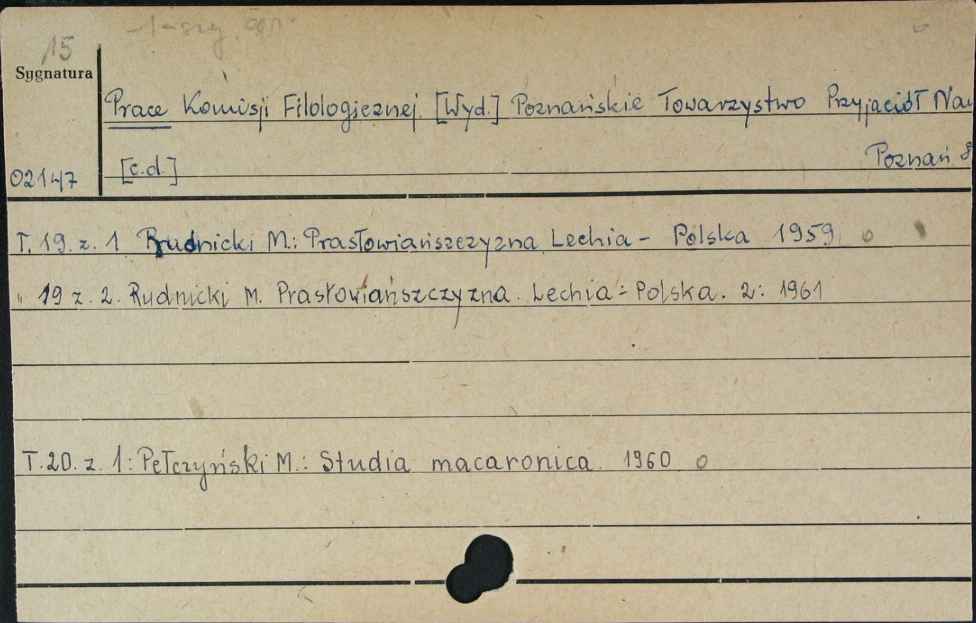 15
Sygnatura
Prace Komisji Filologicznej. [Wyd.] Poznańskie Towarzystwo Przyjaciół Nau
02147 [c.d.] Poznań 8
T. 19. z. 1 Rudnicki M.: Prasłowiańszczyzna Lechia - Polska 1959 o
" 19 z. 2. Rudnicki M. Prasłowiańszczyzna. Lechia - Polska. 2: 1961
T. 20. z. 1: Pełczyński M.: Studia macaronica 1960 o